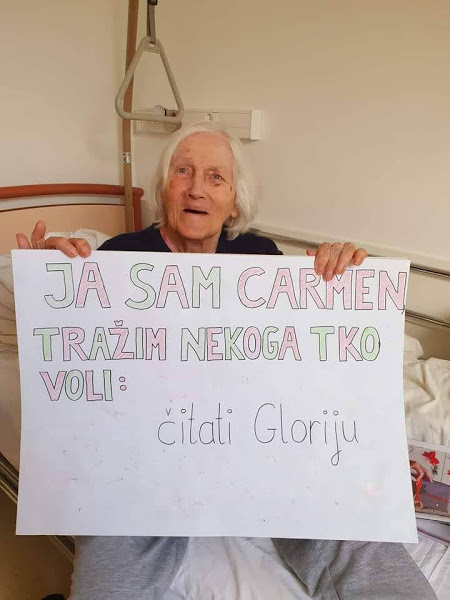 JA SAM CARMEN,
TRAŽIM NEKOGA TKO
VOLI:
čitati Gloriju